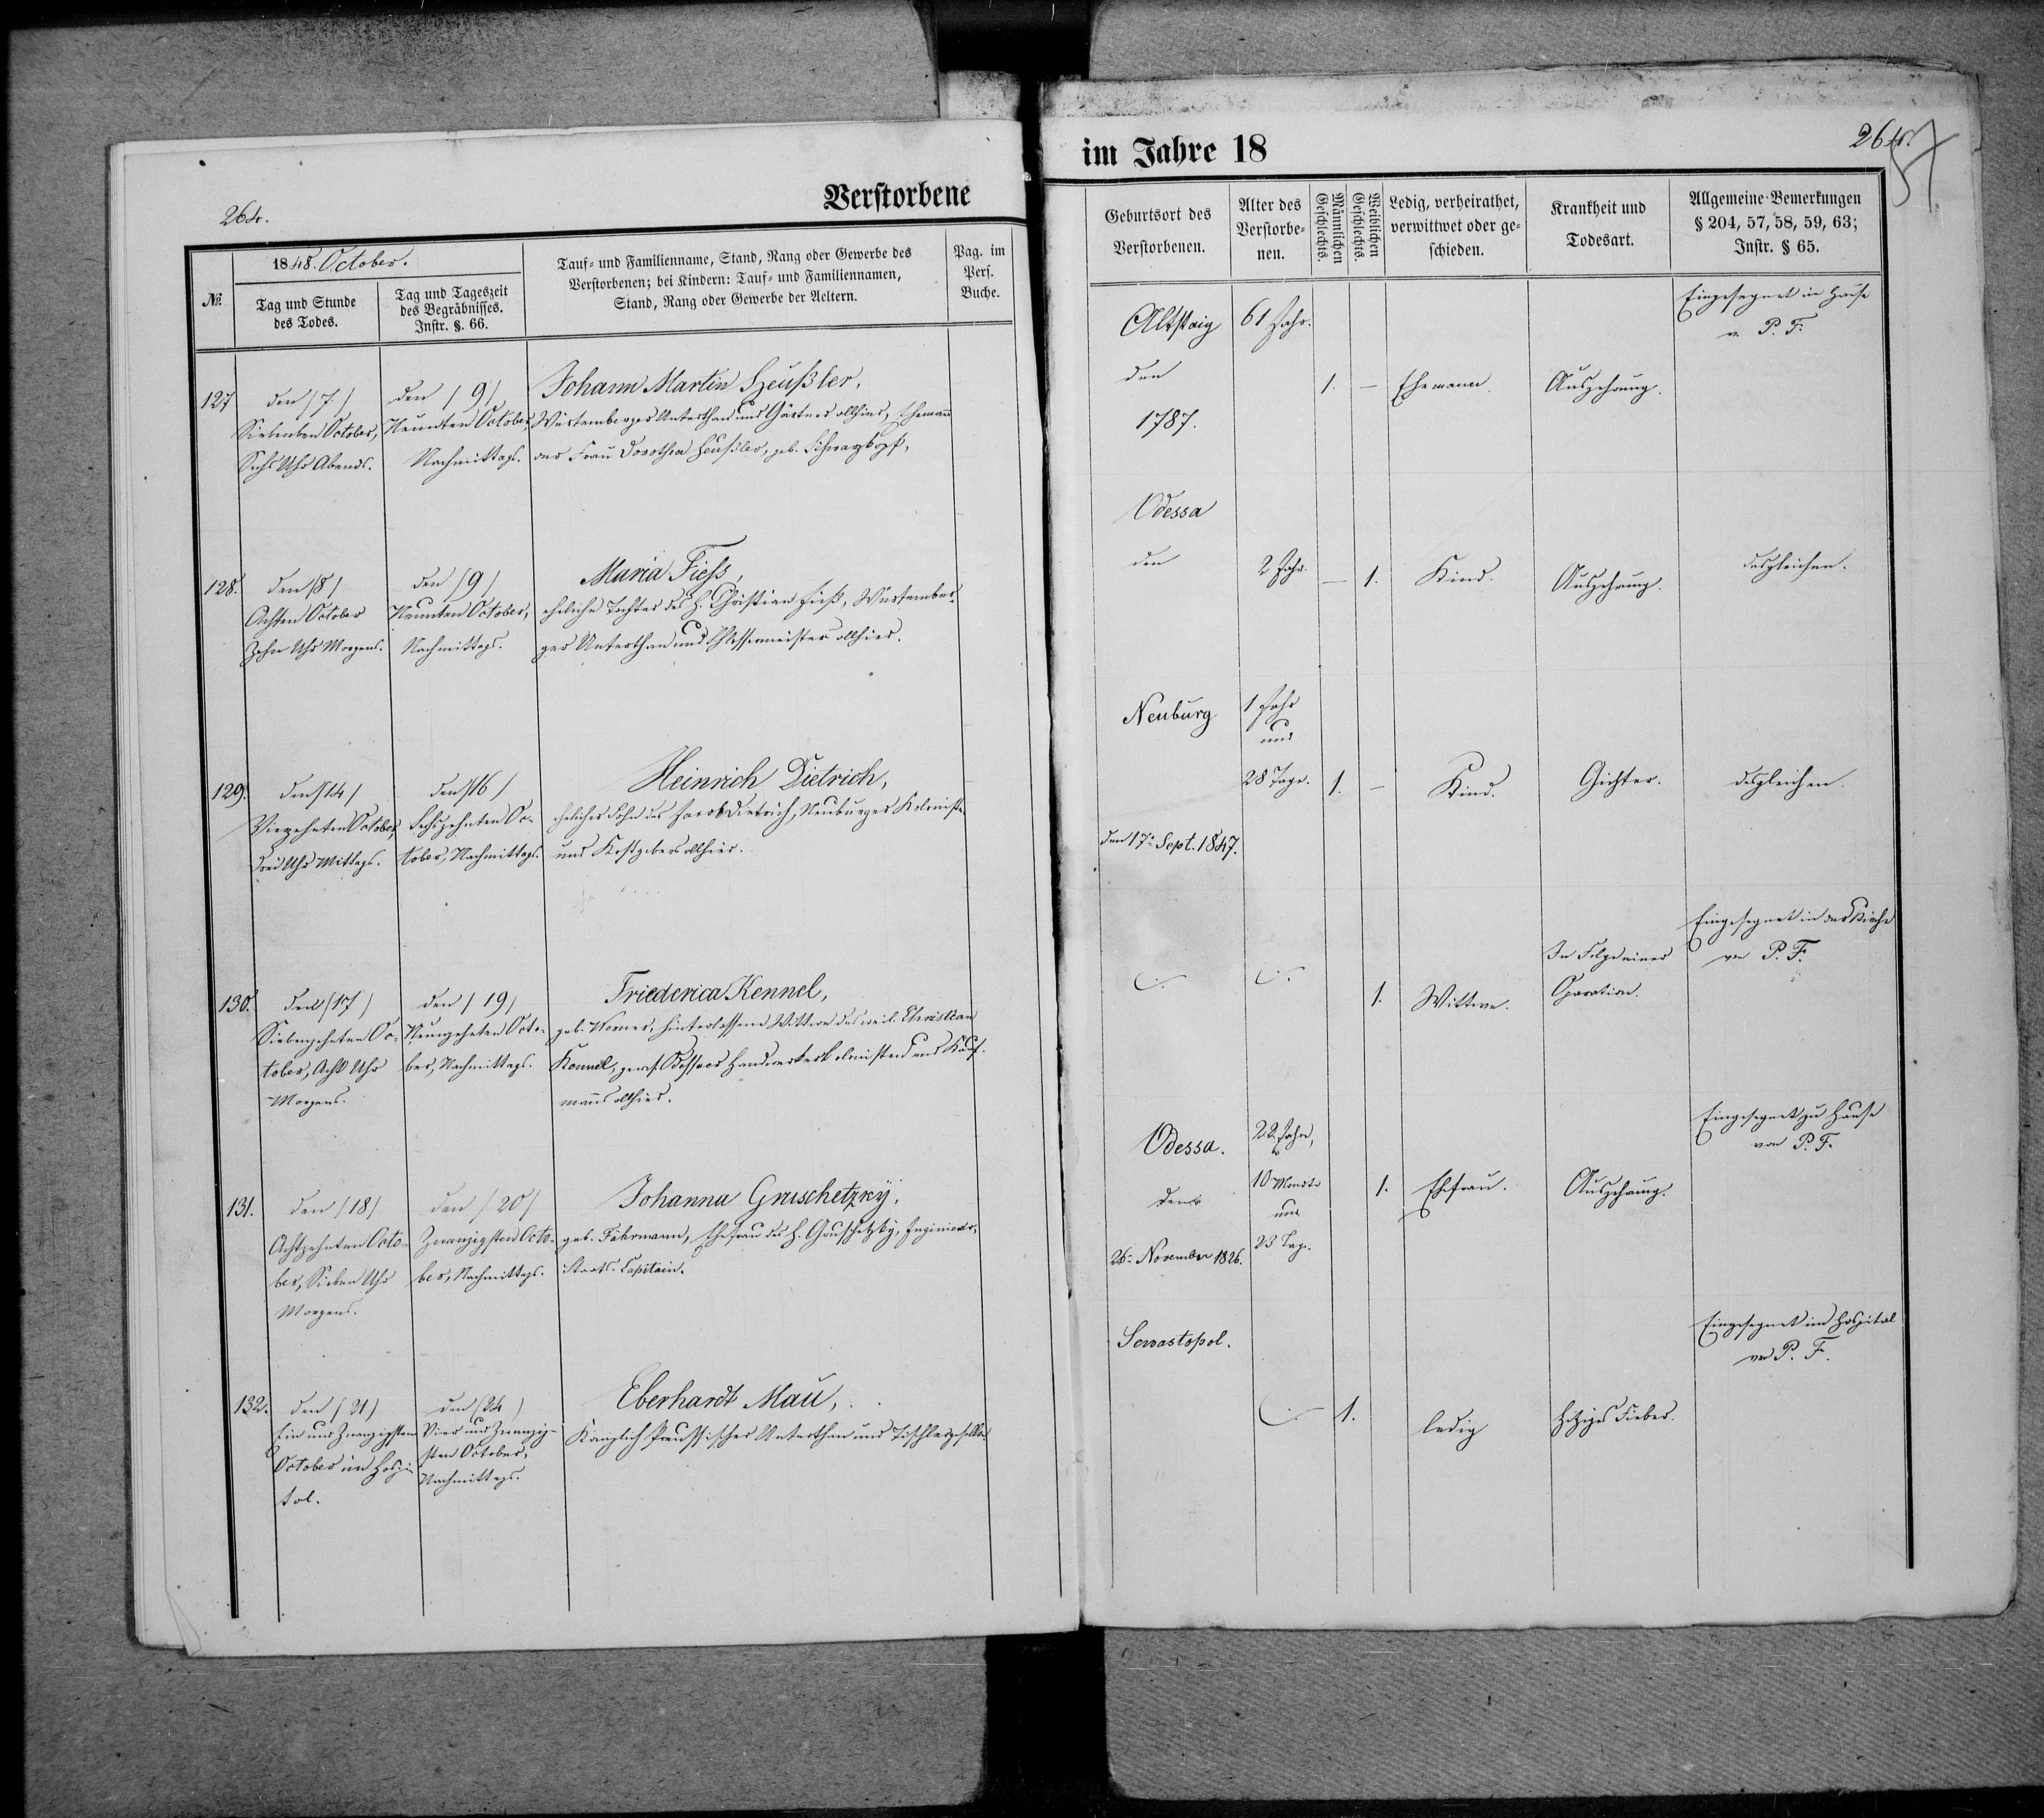 Verstorbene
264.
1848. October.
№.
Tag und Stunde
des Todes.
Tag und Tageszeit
des Begräbnisses.
Instr. §. 66.
Tauf- und Familienname, Stand, Rang oder Gewerbe des
Verstorbenen; bei Kindern: Tauf- und Familiennamen,
Stand, Rang oder Gewerbe der Aeltern.
Pag. im
Pers.
Buche.
127
den /7./
Siebenten October,
Sechs Uhr Abends.
den /9/
Neunten October,
Nachmittags.
Johann Martin Heußler,
Würtemberger Unterthan und Gärtner allhier, Ehemann
der Frau Dorothea Heußler, geb. Schwarzkopf.
128.
den /8/
Achten October
Zehn Uhr Morgens.
den /9/
Neunten October,
Nachmittags.
Maria Fiess,
eheliche Tochter des H. Christian Fieß, Würtember-
ger Unterthan und Schlossermeister allhier.
129.
den /14/
Vierzehnten October,
Drei Uhr Mittags.
den /16/
Sechszehnten Oc-
tober, Nachmittags.
Heinrich Dietrich,
ehelicher Sohn des Jacob Dietrich, Neuburger Kolonist
und Kostgeber allhier.
130.
den /17/
Siebenzehnten Oc-
tober, Acht Uhr
Morgens.
den /19/
Neunzehnten Octo-
ber, Nachmittags.
Friederica Kennel,
geb. Werner, hinterlassene Wittwe des weil. Christian
Kennel, gewes. Odessaer Handwerkerkolonisten und Kauf-
manns allhier.
131.
den /18/
Achtzehnten Octo-
ber, Sieben Uhr
Morgens.
den /20/
Zwanzigsten Octo-
ber, Nachmittags.
Johanna Gruschetzky,
geb. Fährmann, Ehefrau des H. Gruschetzky, Ingenieur,
Staats-Capitain.
132.
den /21/
Ein und Zwanzigsten
October im Hospi-
tal.
den /24/
Vier und Zwanzig-
sten October,
Nachmittags.
Eberhardt Mau,
Königlich Preussischer Unterthan und Tischlergeselle.
im Jahre 18
264.
57
Geburtsort des
Verstorbenen.
Alter des
Verstorbe-
nen.
Männlichen
Geschlechts.
Weiblichen
Geschlechts.
Ledig, verheirathet,
verwittwet oder ge-
schieden.
Krankheit und
Todesart.
Allgemeine Bemerkungen
§ 204, 57, 58, 59, 63;
Instr. § 65.
Altstaig
den
1787.
61 Jahr.
1.
–
Ehemann.
Auszehrung.
Eingesegnet im Hause
v. P. F.
Odessa
den
2 Jahr.
–
1.
Kind.
Auszehrung.
desgleichen.
Neuburg
den 17. Sept. 1847.
1 Jahr
und
28 Tage.
1.
–
Kind.
Gichter.
desgleichen.
1.
Wittwe.
In Folge einer
Operation.
Eingesegnet in der Kirche
von P. F.
Odessa.
den
26. November 1826.
22 Jahre,
10 Monate
und
23 Tage.
1.
Ehefrau.
Auszehrung.
Eingesegnet zu Hause
von P. F.
Sewastopol.
1.
ledig
hitziges Fieber.
Eingesegnet im Hospital
von P. F.